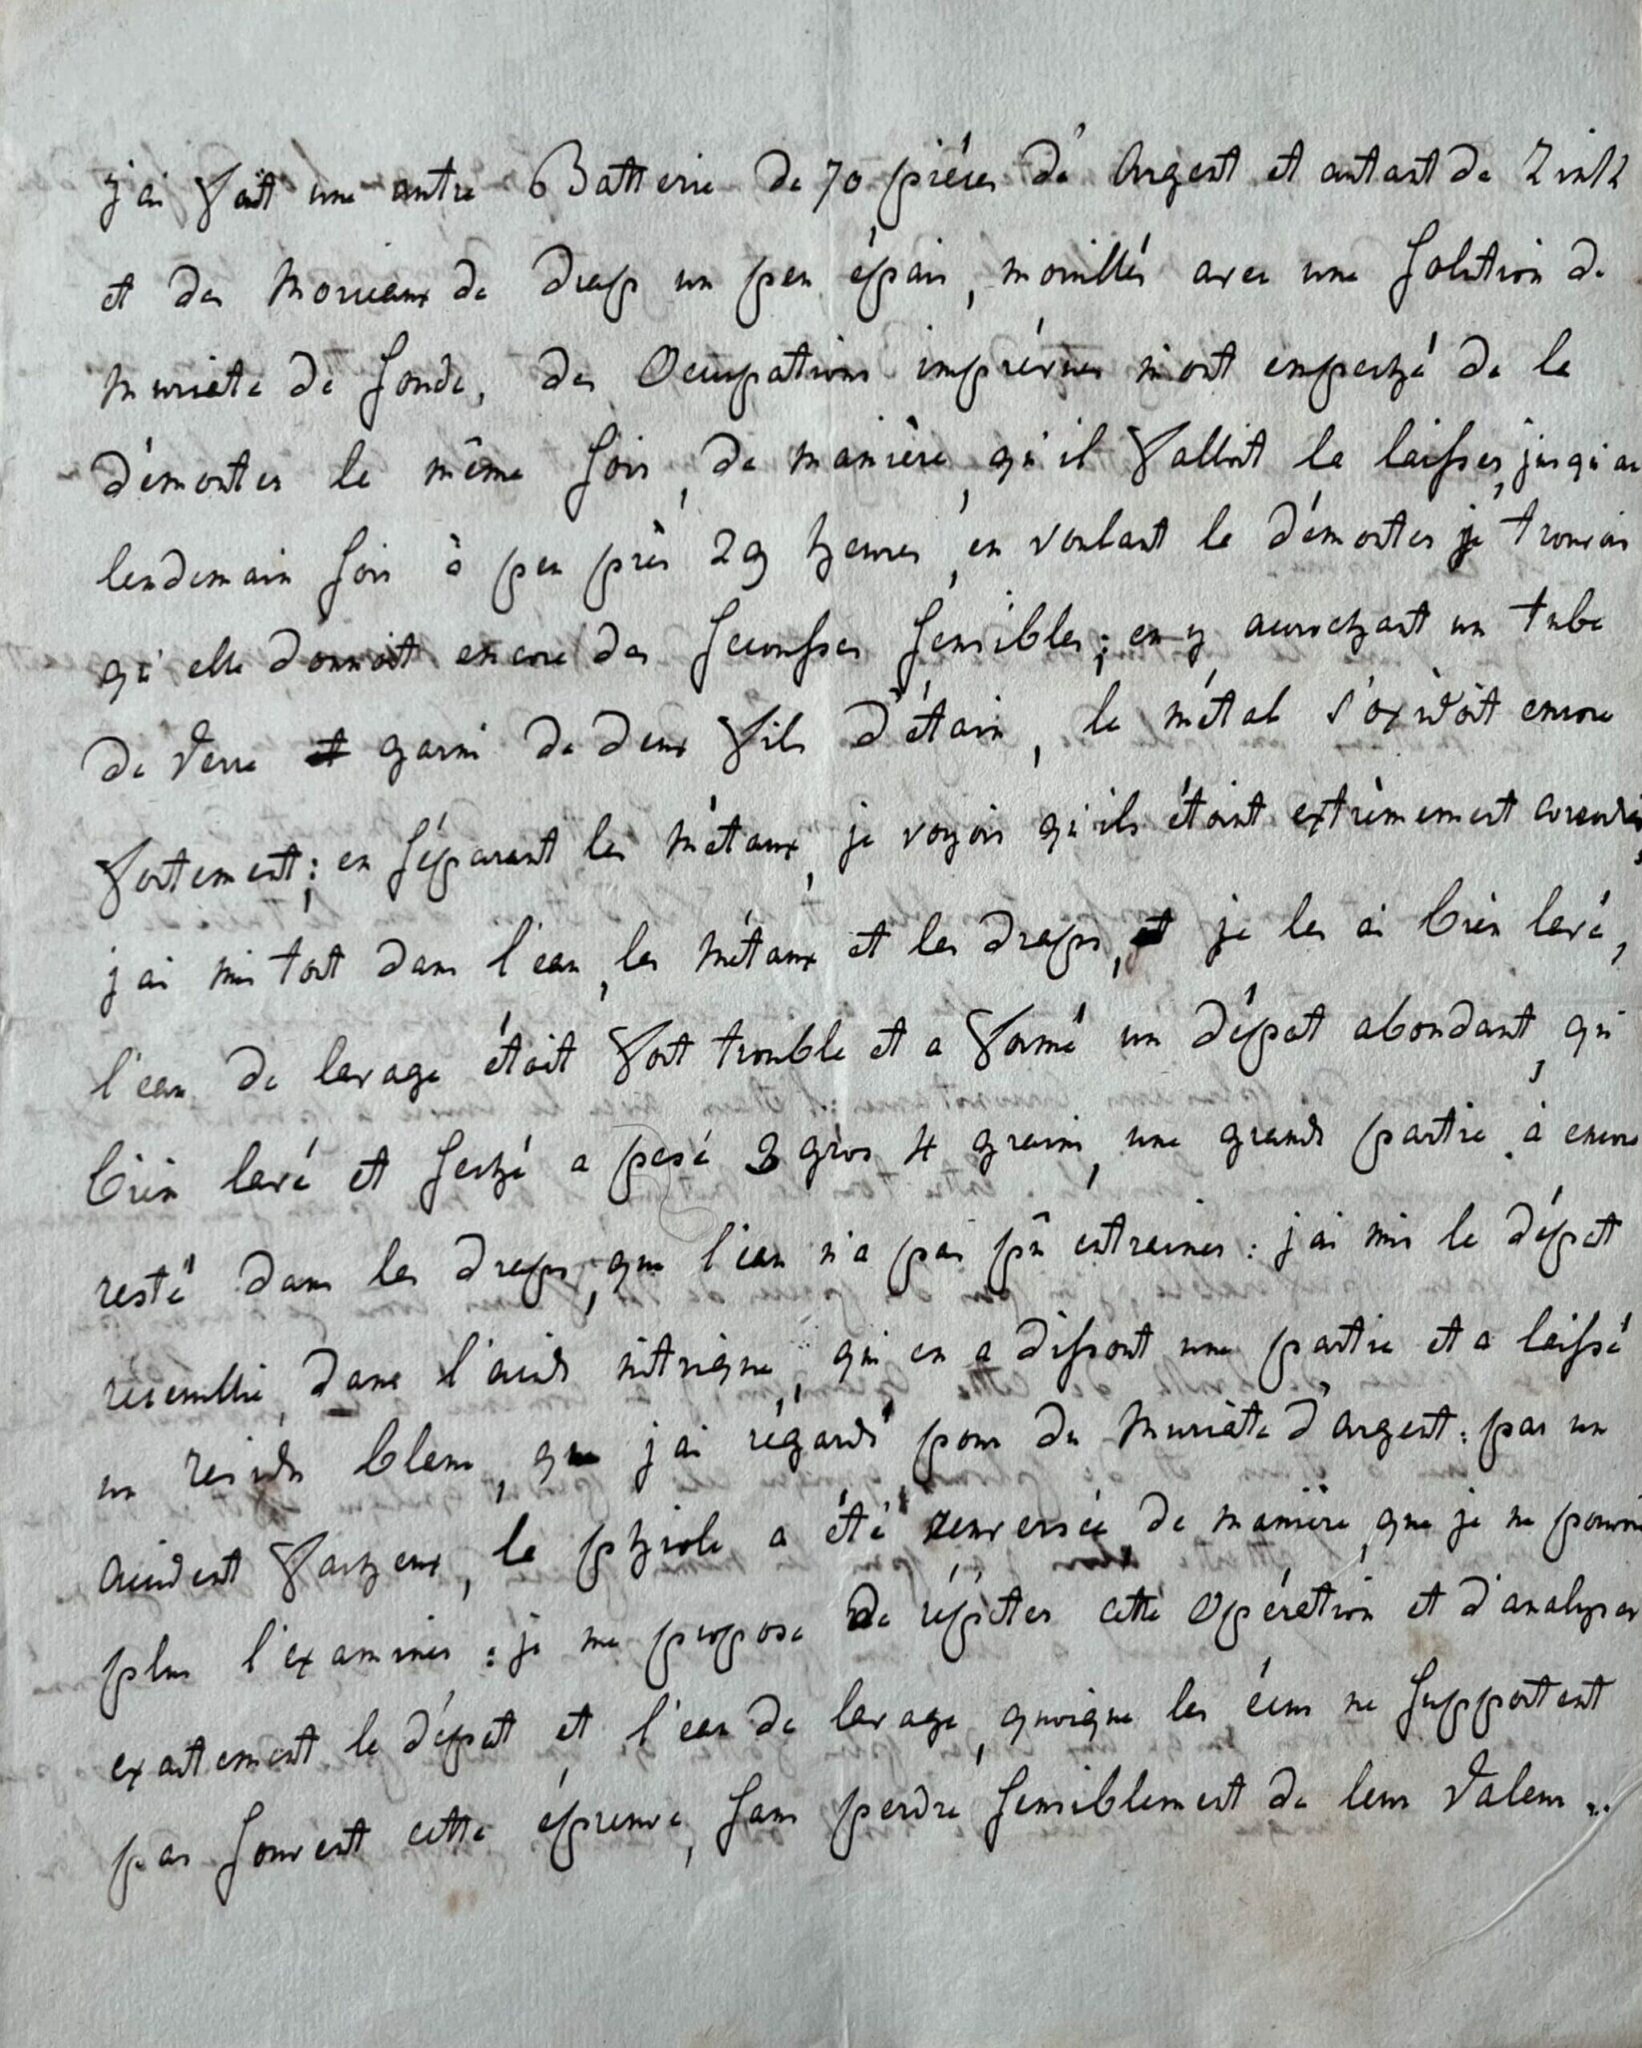 j'ai fait une autre Batterie de 70 piéces d'Argent et autant de Zinck
et des Morceaux de drap un peu épais, mouillés avec une Solution de
Muriate de Soude, des Occupations imprévues m'ont empeché de la
démonter le même Soir, de maniere, qu'il falloit la laisser, jusqu'au
lendemain Soir à peu près 29 heures, en voulant la démonter je trouvais
qu'elle donnoit encore des Secousses Sensibles; en y accrochant un tube
de Verre garni de deux fils d'étain, le métal s'oxidoit encore
fortement; en Séparant les Métaux, je voyois qu'ils étoint extrèmement corrodés,
j'ai mis tout dans l'eau, les Métaux et les draps, et je les ai bien lavé,
l'eau de lavage étoit fort trouble et a formé un dépot abondant, qui
bien lavé et Seché a pesé 3 gros 4 grains, une grande partie à encore
resté dans les draps, que l'eau n'a pas pû entrainer: j'ai mis le dépot
recueilli, dans l'acide nitrique, qui en a dissout une partie et a laissé
un residu blanc, que j'ai régardé pour du Muriate d'Argent: par un
Accident facheux, la phiole a été renversée de maniere, que je ne pouvois
plus l'examiner: je me propose de répéter cette Opération et d'analyser
exactement le dépot et l'eau de lavage, quoique les écus ne Supportent
pas Souvent cette épreuve, Sans perdre Sensiblement de leur Valeur..